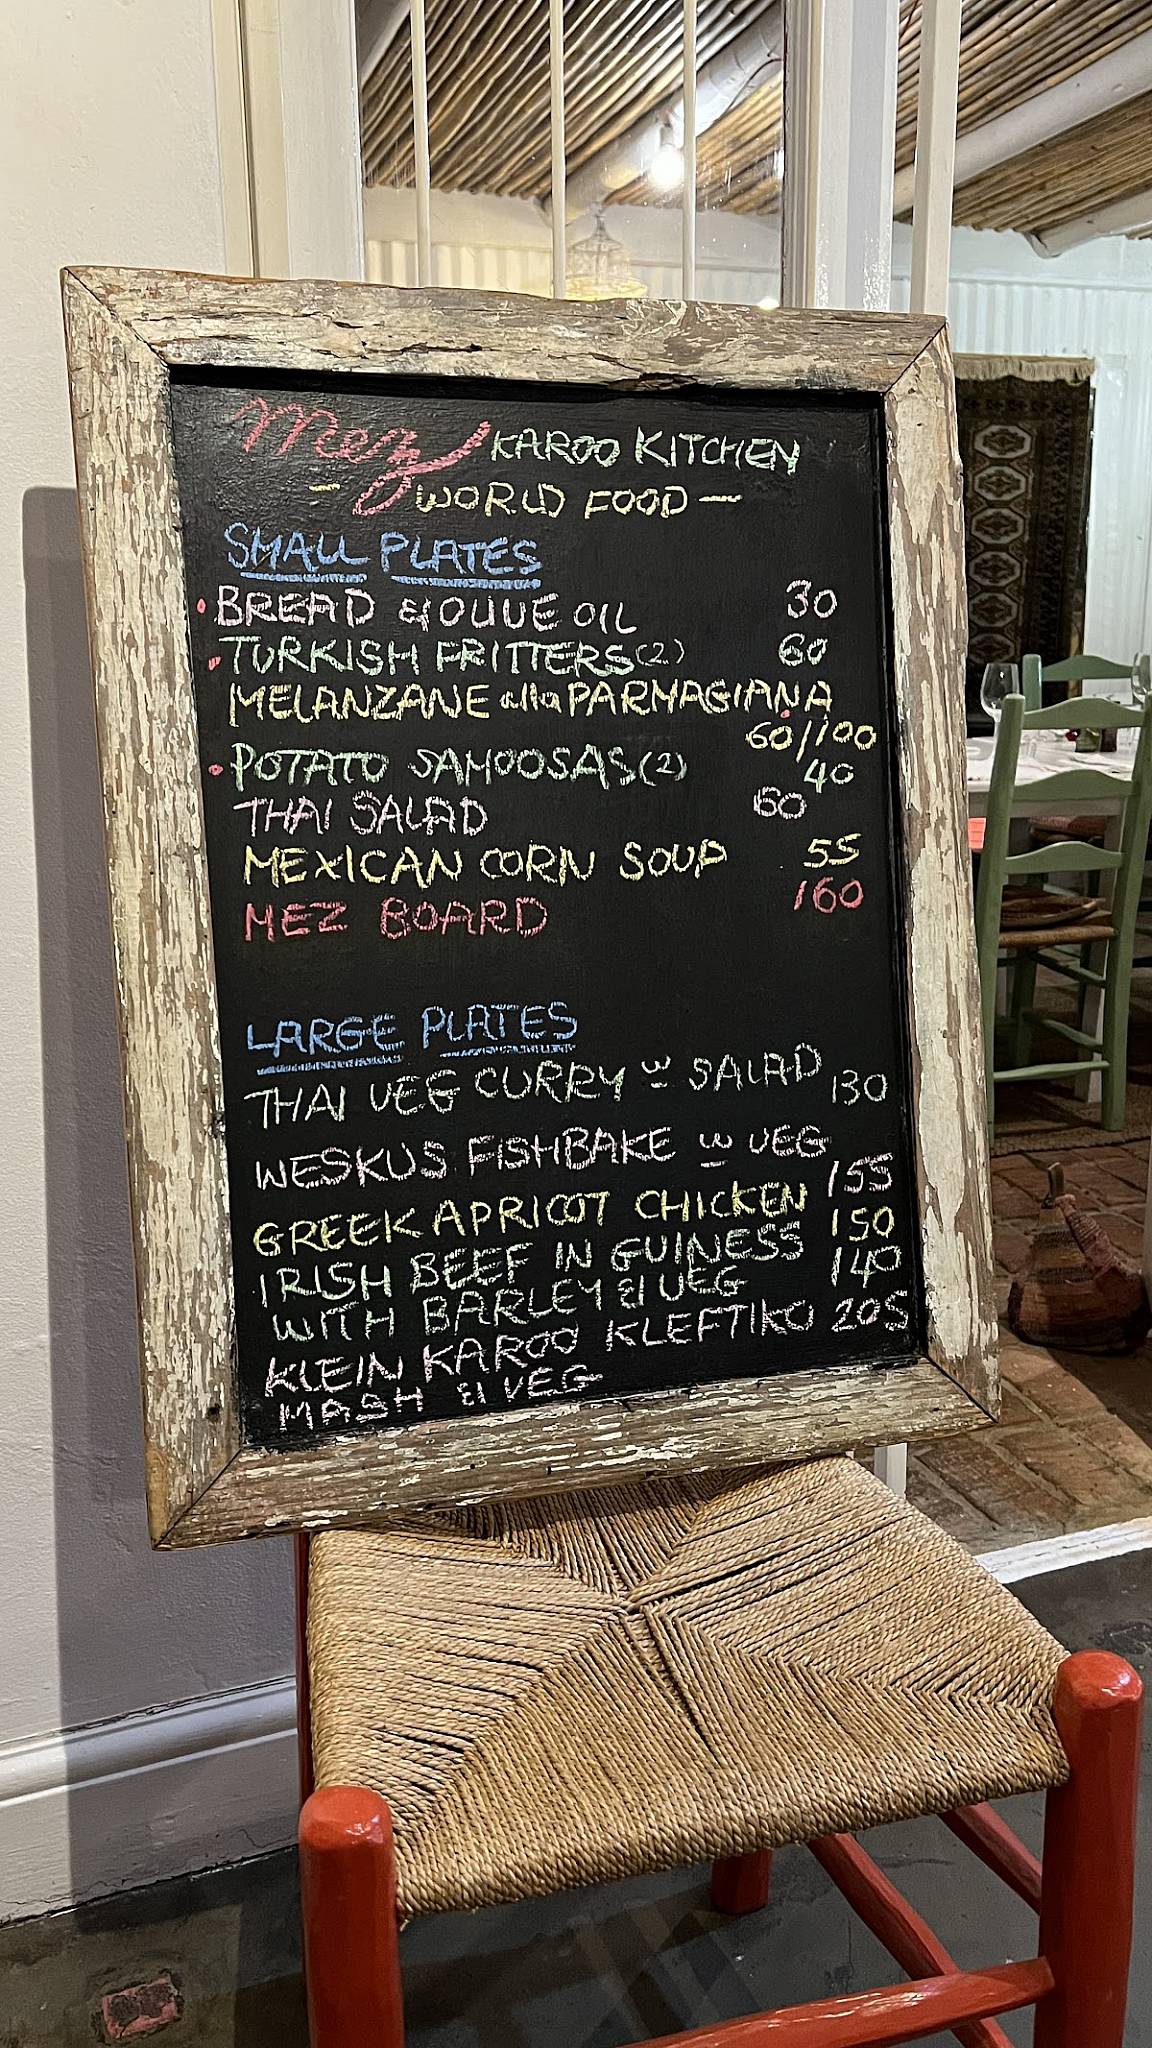 Mez KAROO KITCHEN
- WORLD FOOD -
SMALL PLATES
• BREAD & OLIVE OIL 30
• TURKISH FRITTERS (2) 60
MELANZANE alla PARMAGIANA
60/100
• POTATO SAMOOSAS (2) 40
THAI SALAD 60
MEXICAN CORN SOUP 55
MEZ BOARD 160
LARGE PLATES
THAI VEG CURRY w SALAD 130
WESKUS FISHBAKE w VEG 155
GREEK APRICOT CHICKEN 150
IRISH BEEF IN GUINESS 140
WITH BARLEY & VEG
KLEIN KAROO KLEFTIKO 205
MASH & VEG